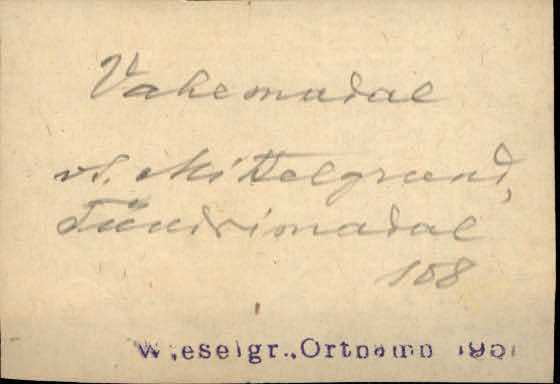 Vahemadal
vt. Mittelgrund,
Tüürimadal
108
Wieselgr., Ortnamn 1951